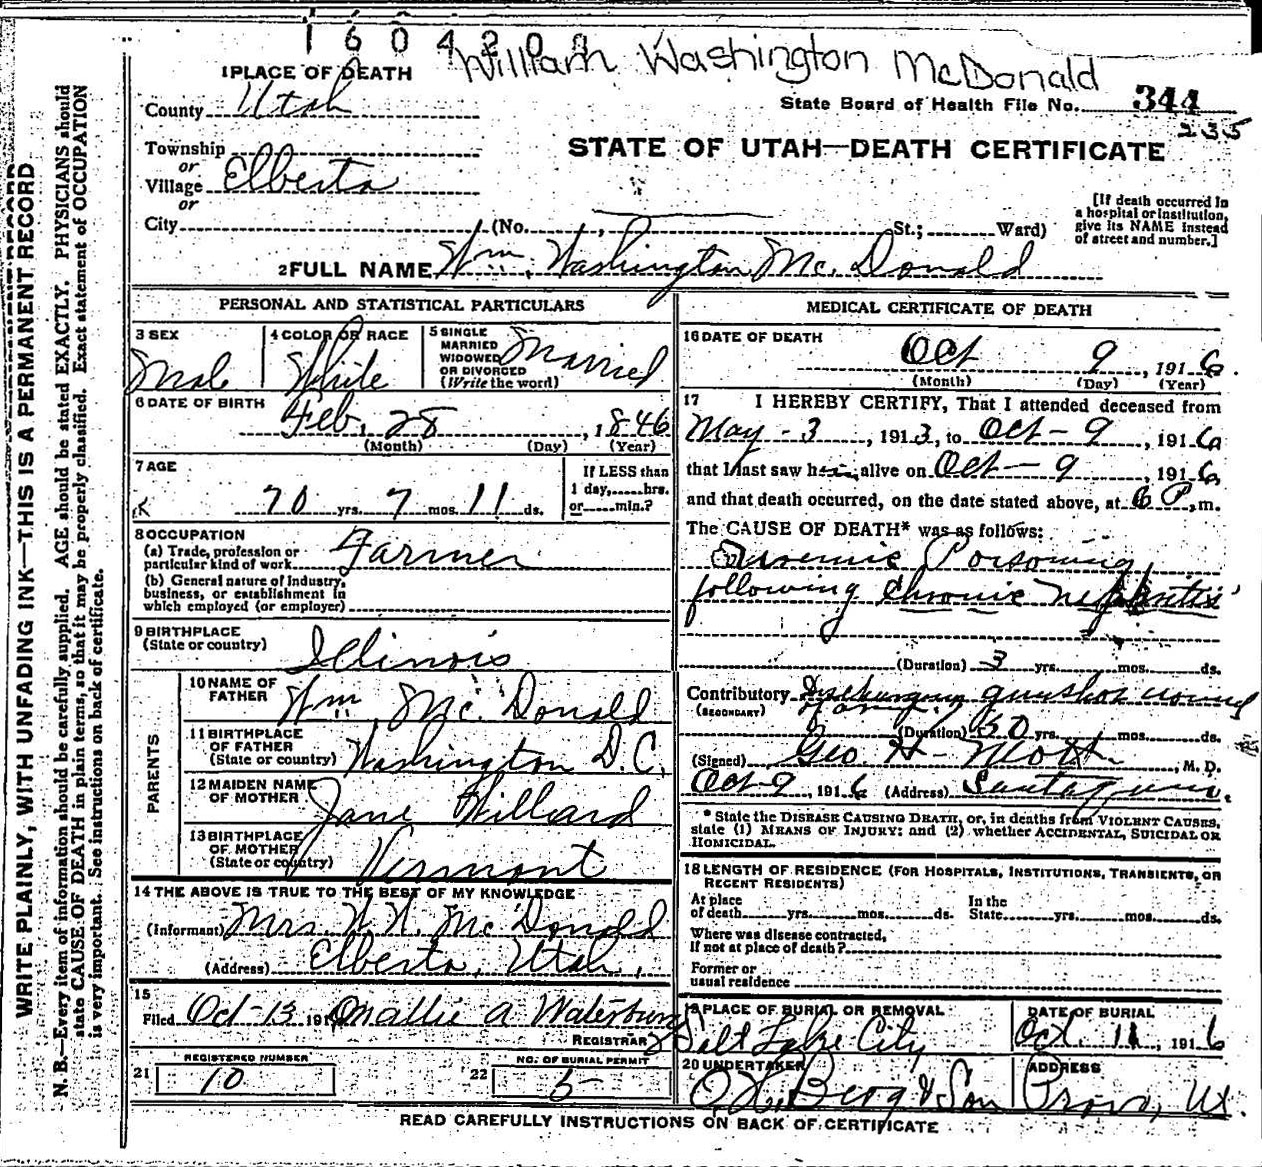 1 6 0 4 2 0 0
William Washington McDonald
1 PLACE OF DEATH
County Utah
State Board of Health File No. 344
235
Township
or
Village Elberta
or
City
STATE OF UTAH—DEATH CERTIFICATE
(No. , St.; Ward)
[If death occurred in
a hospital or institution,
give its NAME instead
of street and number.]
2 FULL NAME Wm. Washington Mc. Donald
WRITE PLAINLY, WITH UNFADING INK—THIS IS A PERMANENT RECORD
N. B.—Every item of information should be carefully supplied. AGE should be stated EXACTLY. PHYSICIANS should
state CAUSE OF DEATH in plain terms, so that it may be properly classified. Exact statement of OCCUPATION
is very important. See instructions on back of certificate.
PERSONAL AND STATISTICAL PARTICULARS
3 SEX
Male
4 COLOR OR RACE
White
5 SINGLE
MARRIED
WIDOWED
OR DIVORCED
(Write the word)
Married
6 DATE OF BIRTH
Feb. 28, 1846
(Month) (Day) (Year)
7 AGE
70 yrs. 7 mos. 11 ds.
If LESS than
1 day,.....hrs.
or.....min.?
8 OCCUPATION
(a) Trade, profession or
particular kind of work Farmer
(b) General nature of Industry,
business, or establishment in
which employed (or employer)
9 BIRTHPLACE
(State or country)
Illinois
PARENTS
10 NAME OF
FATHER
Wm. Mc. Donald
11 BIRTHPLACE
OF FATHER
(State or country)
Washington D.C.
12 MAIDEN NAME
OF MOTHER
Jane Willard
13 BIRTHPLACE
OF MOTHER
(State or country)
Vermont
14 THE ABOVE IS TRUE TO THE BEST OF MY KNOWLEDGE
(Informant) Mrs. W. W. McDonald
(Address) Elberta, Utah.
15
Filed Oct-13 191 Mallie A Waterbury
REGISTRAR
REGISTERED NUMBER
21 10
NO. OF BURIAL PERMIT
22 5-
MEDICAL CERTIFICATE OF DEATH
16 DATE OF DEATH
Oct 9, 1916.
(Month) (Day) (Year)
17 I HEREBY CERTIFY, That I attended deceased from
May-3, 1913, to Oct-9, 1916
that I last saw him alive on Oct-9, 1916,
and that death occurred, on the date stated above, at 6 P.m.
The CAUSE OF DEATH* was as follows:
Uraemic Poisoning
following Chronic Nephritis
(Duration) 3 yrs. mos. ds.
Contributory Discharging gunshot wound
(SECONDARY)
(Duration) 50 yrs. mos. ds.
(Signed) Geo H- Mott, M. D.
Oct-9, 1916 (Address) Santaquin.
* State the DISEASE CAUSING DEATH, or, in deaths from VIOLENT CAUSES,
state (1) MEANS OF INJURY; and (2) whether ACCIDENTAL, SUICIDAL OR
HOMICIDAL.
18 LENGTH OF RESIDENCE (FOR HOSPITALS, INSTITUTIONS, TRANSIENTS, OR
RECENT RESIDENTS)
At place
of death yrs. mos. ds.
In the
State yrs. mos. ds.
Where was disease contracted,
if not at place of death?
Former or
usual residence
19 PLACE OF BURIAL OR REMOVAL
Salt Lake City
DATE OF BURIAL
Oct. 11, 1916
20 UNDERTAKER
O. H. Berg & Son
ADDRESS
Provo, Ut.
READ CAREFULLY INSTRUCTIONS ON BACK OF CERTIFICATE